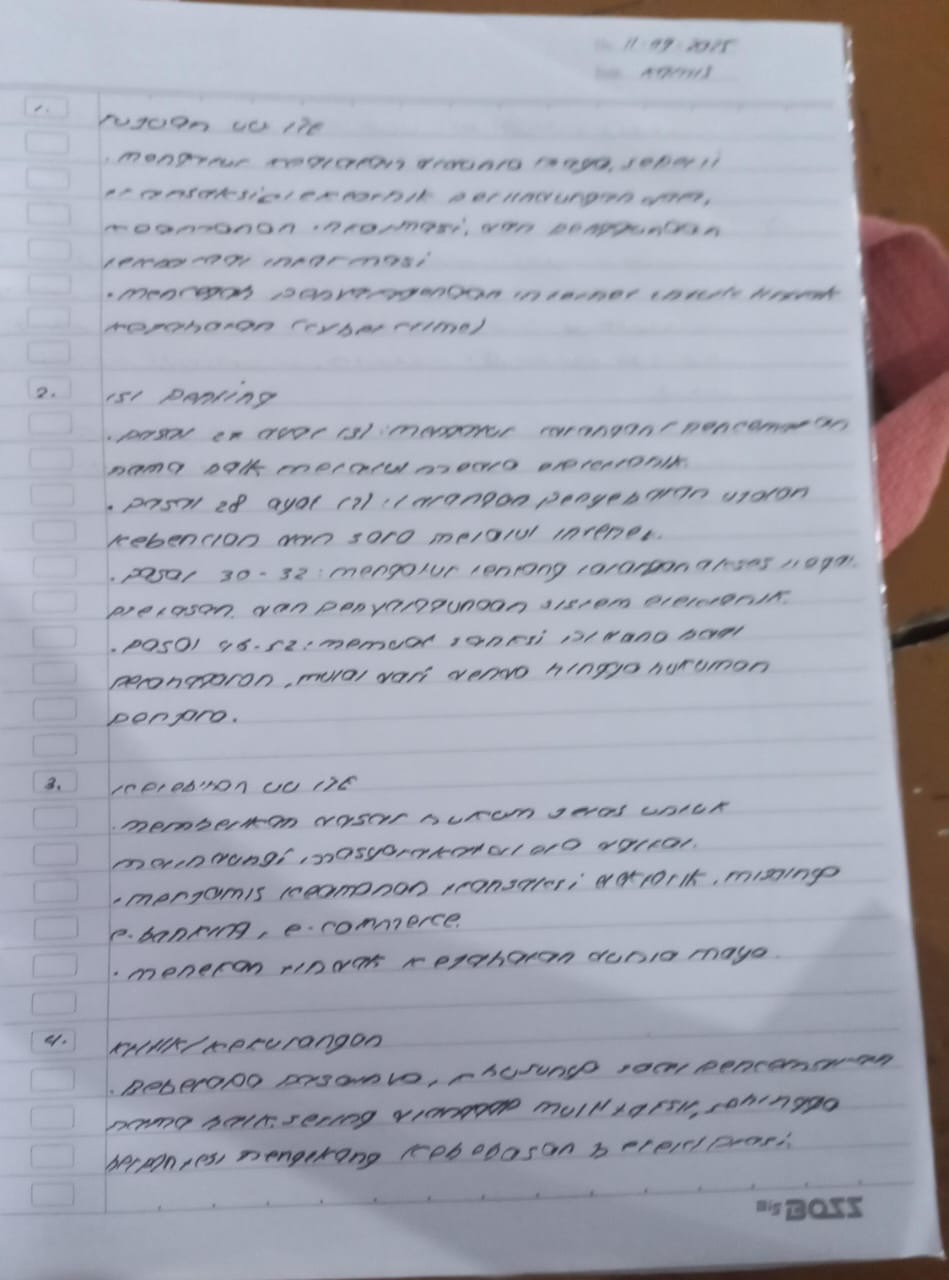 11-09-2025
Kamis
1.
Tujuan UU ITE
. mengatur kegiatan didunia maya, seperti
transaksi elektornik perlindungan data,
keamanan informasi, dan penggunaan
teknologi informasi
. mencegah penyalagengaan internet untuk tindak
kejahatan (cyber crime)
2. isi penting
. pasal 27 ayat (3) : mengatur larangan pencemaran
nama baik melalui media elektronik.
. pasal 28 ayat (2) : larangan penyebaran ujaran
kebencian dan sara melalui internet.
. pasal 30-32 : mengatur tentang larangan akses ilegal
pretasan. dan penyalaggunaan sistem elektronik.
. pasal 45-52 : memuat sanksi pidana bagi
pelanggaran, mulai dari denda hingga hukuman
penjara.
3. kelebihan UU ITE
. memberikan dasar hukum jelas untuk
masyarakat era digital.
. keamanan transaksi misalnya
e.banking, e-commerce.
. menekan tindak kejahatan dunia maya.
4. kritik/kekurangan
. Beberapa pasalnya, khususnya soal pencemaran
nama baik. sering dianggap multitafsir, sehingga
mengekang kebebasan berekspresi.
BIG BOSS